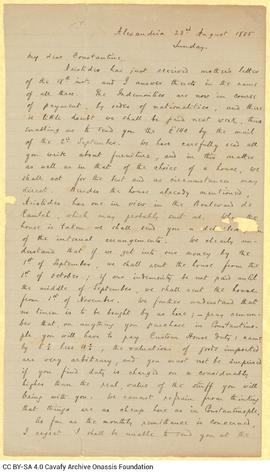 Alexandria 23rd August 1885
Sunday.
My dear Constantine,
Aristides has just received mother's letter
of the 18th inst. and I answer thereto in the name
of all three. The Indemnities are now in course
of payment, by order of nationalities, and there
is little doubt we shall be paid next week, thus
enabling us to send you the £100 by the mail
of the 2nd September. We have carefully read all
you write about furniture, and in this matter
as well as in that of the choice of a house, we
shall act for the best and as circumstances may
direct. Besides the house already mentioned,
Aristides has one in view in the Boulevard de
Ramleh, which may probably suit us. When the
house is taken we shall send you a
of the internal arrangements. We clearly un-
derstand that if we get into our money by the
1st of September, we shall rent the house from the
1st of October; if our indemnity be not paid until
the middle of September, we shall rent the house
from 1st of November. We further understand that
no linen is to be bought by us here; pray remem-
ber that, on anything you purchase in Constantino-
ple you will have to pay Custom House duty: namely
8% less 10%, the valuations of goods imported
are very arbitrary, and you must not be surprised
if you find duty is charged on a considerably
higher than the real, value of the stuff you will
bring with you. We cannot refrain from thinking
that things are as cheap here as in Constantinople.
As far as the monthly remittance is concerned,
I regret I shall be unable to send you at the
CC BY-SA 4.0 Cavafy Archive Onassis Foundation